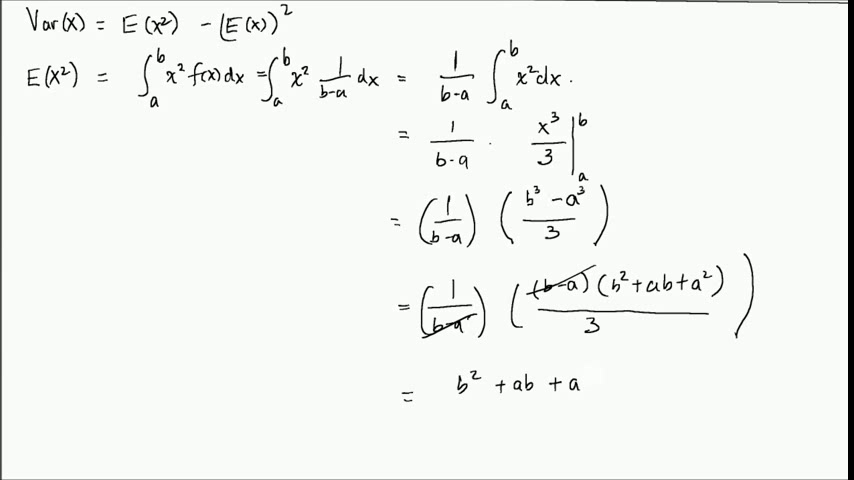 Var(x) = E(x²) - (E(x))²
E(x²) = ∫_a^b x² f(x) dx = ∫_a^b x² 1/(b-a) dx = 1/(b-a) ∫_a^b x² dx.
= 1/(b-a) · x³/3 |_a^b
= (1/(b-a)) ((b³ - a³)/3)
= (1/(b-a)) ((b-a)(b² + ab + a²)/3)
= b² + ab + a